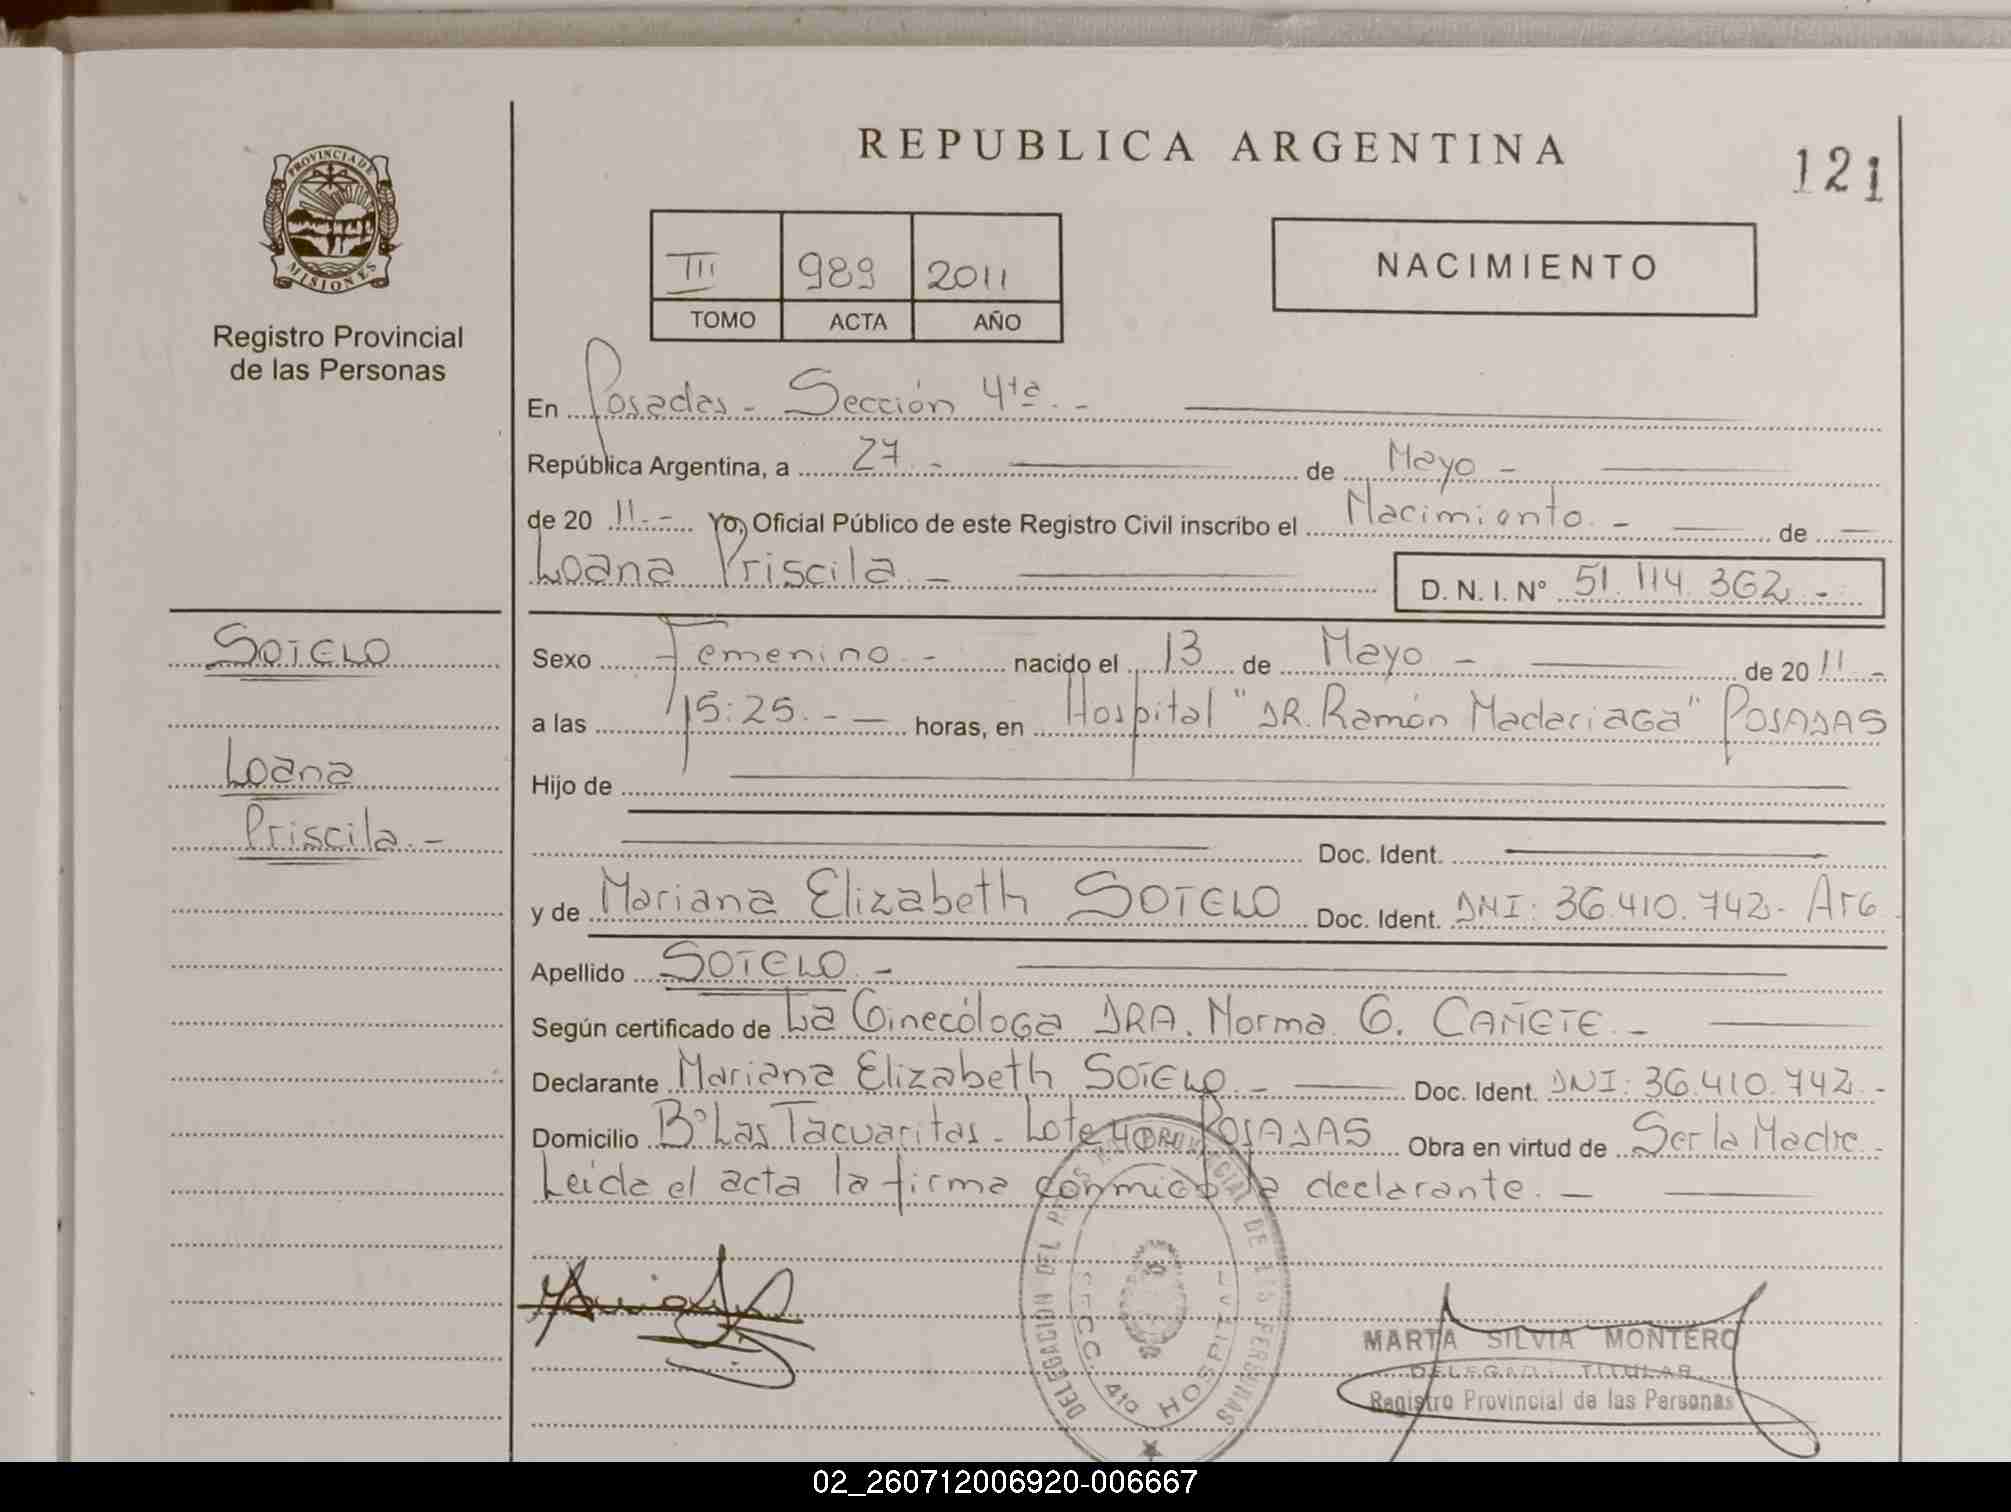 REPUBLICA ARGENTINA
121
PROVINCIA DE
MISIONES
Registro Provincial
de las Personas
III 989 2011
TOMO ACTA AÑO
NACIMIENTO
En Posadas - Sección 4ta. -
República Argentina, a 27. - de Mayo -
de 20 11. - Yo, Oficial Público de este Registro Civil inscribo el Nacimiento. - de
Loana Priscila. - D. N. I. Nº 51.114.362. -
SOTELO
Loana
Priscila. -
Sexo Femenino. - nacido el 13 de Mayo - de 20 11. -
a las 15:25. - horas, en Hospital "DR. Ramón Madariaga" POSADAS
Hijo de
Doc. Ident.
y de Mariana Elizabeth SOTELO Doc. Ident. DNI: 36.410.742- Arg
Apellido SOTELO. -
Según certificado de La Ginecóloga DRA. Norma G. CAÑETE. -
Declarante Mariana Elizabeth SOTELO. - Doc. Ident. DNI: 36.410.742. -
Domicilio Bº Las Tacuaritas - Lote POSADAS Obra en virtud de Ser la Madre -
Leida el acta la firma conmigo la declarante. -
DELEGACION DEL REGISTRO PROVINCIAL DE LAS PERSONAS
SECC. 4ta HOSPITAL
MARTA SILVIA MONTERO
DELEGADA TITULAR
Registro Provincial de las Personas
02_260712006920-006667